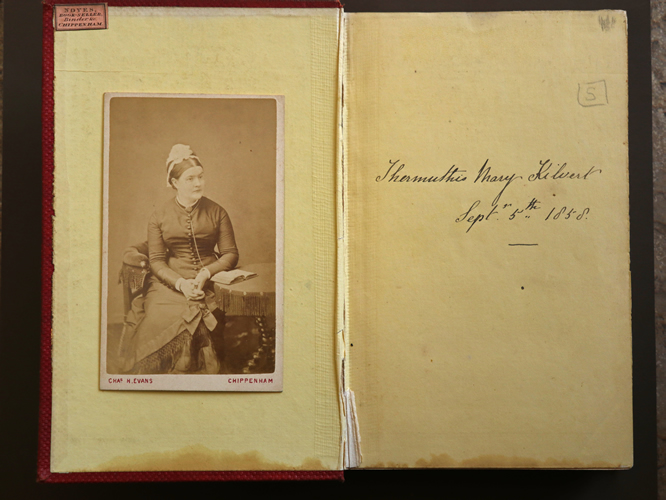 NOYES,
BOOK-SELLER,
Binder &c.
CHIPPENHAM.
CHAS. H. EVANS CHIPPENHAM
5
Thermuthis Mary Kilvert
Septr. 5th 1858.